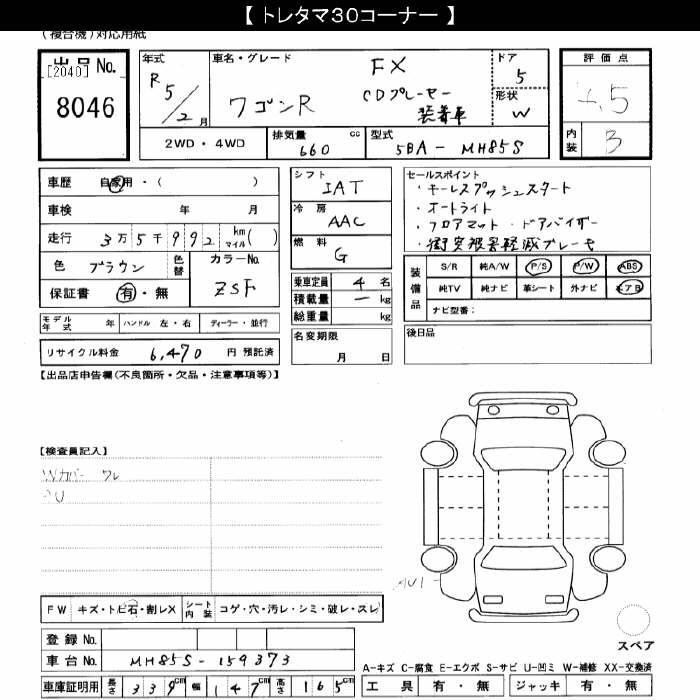 【 トレタマ30コーナー 】
(複合機)対応用紙
出品 No.
[2040]
8046
年式
R5/2月
車名・グレード
FX
ワゴンR
CDプレーヤー
装着車
ドア
5
形状
W
評価点
4.5
内装
B
2WD・4WD
排気量 660 cc
型式 5BA - MH85S
車歴 自家用・( )
車検 年 月
走行 3万5千992 km マイル( )
色 ブラウン 色替
カラーNo. ZSF
保証書 有・無
シフト
IAT
冷房
AAC
燃料
G
乗車定員 4名
積載量 ー kg
総重量 kg
セールスポイント
・キーレスプッシュスタート
・オートライト
・フロアマット・ドアバイザー
・衝突被害軽減ブレーキ
装備品
S/R 純A/W P/S P/W ABS
純TV 純ナビ 革シート 外ナビ エアB
ナビ型番:
モデル年式 年 ハンドル 左・右 ディーラー・並行
名変期限
月 日
後日品
リサイクル料金 6,470 円 預託済
【出品店申告欄(不良箇所・欠品・注意事項等)】
【検査員記入】
Wカバー ワレ
AU1
FW キズ・トビ石・割レX
シート内装 コゲ・穴・汚レ・シミ・破レ・スレ
登録 No.
車台 No. MH85S-159373
車庫証明用 長さ 339cm 幅 147cm 高さ 165cm
スペア
A-キズ C-腐食 E-エクボ S-サビ U-凹ミ W-補修 XX-交換済
工具 有・無 ジャッキ 有・無